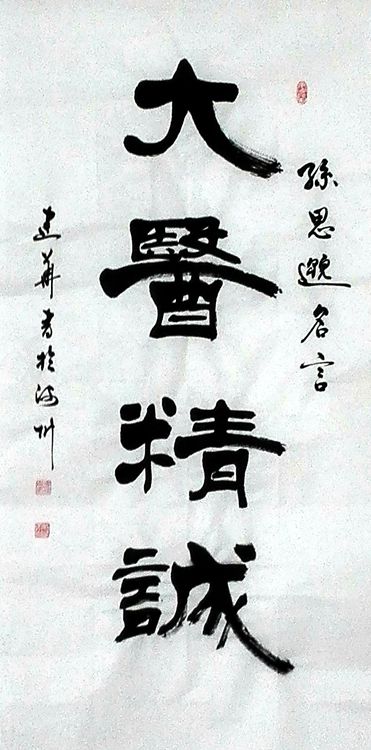 孫思邈名言
大醫精誠
建華書於河州